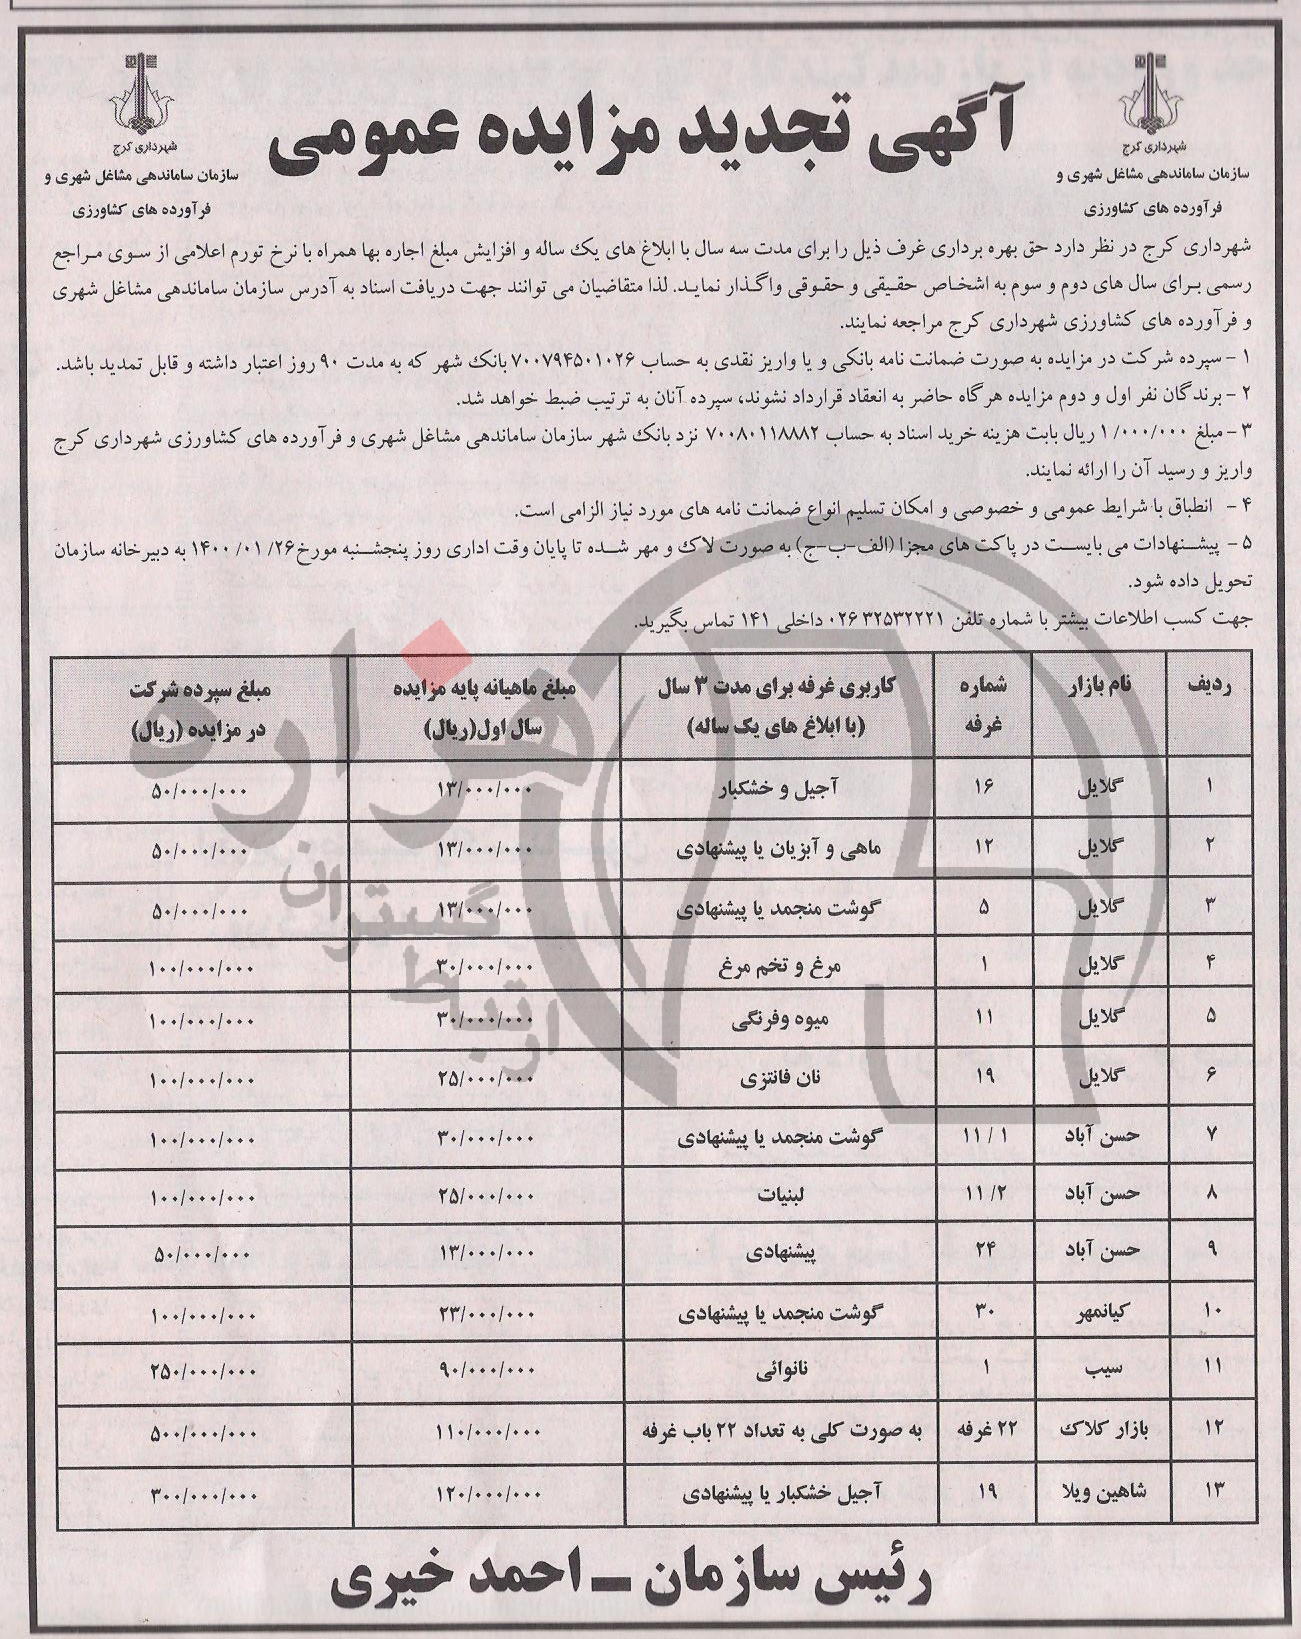 آگهی تجدید مزایده عمومی
شهرداری کرج
سازمان ساماندهی مشاغل شهری و
فرآورده های کشاورزی
شهرداری کرج
سازمان ساماندهی مشاغل شهری و
فرآورده های کشاورزی
شهرداری کرج در نظر دارد حق بهره برداری غرف ذیل را برای مدت سه سال با ابلاغ های یک ساله و افزایش مبلغ اجاره بها همراه با نرخ تورم اعلامی از سوی مراجع
رسمی برای سال های دوم و سوم به اشخاص حقیقی و حقوقی واگذار نماید. لذا متقاضیان می توانند جهت دریافت اسناد به آدرس سازمان ساماندهی مشاغل شهری
و فرآورده های کشاورزی شهرداری کرج مراجعه نمایند.
۱- سپرده شرکت در مزایده به صورت ضمانت نامه بانکی و یا واریز نقدی به حساب ۷۰۰۷۹۴۵۰۱۰۲۶ بانک شهر که به مدت ۹۰ روز اعتبار داشته و قابل تمدید باشد.
۲- برندگان نفر اول و دوم مزایده هرگاه حاضر به انعقاد قرارداد نشوند، سپرده آنان به ترتیب ضبط خواهد شد.
۳- مبلغ ۱/۰۰۰/۰۰۰ ریال بابت هزینه خرید اسناد به حساب ۷۰۰۸۰۱۱۸۸۸۲ نزد بانک شهر سازمان ساماندهی مشاغل شهری و فرآورده های کشاورزی شهرداری کرج
واریز و رسید آن را ارائه نمایند.
۴- انطباق با شرایط عمومی و خصوصی و امکان تسلیم انواع ضمانت نامه های مورد نیاز الزامی است.
۵- پیشنهادات می بایست در پاکت های مجزا (الف-ب-ج) به صورت لاک و مهر شده تا پایان وقت اداری روز پنجشنبه مورخ ۱۴۰۰/۰۱/۲۶ به دبیرخانه سازمان
تحویل داده شود.
جهت کسب اطلاعات بیشتر با شماره تلفن ۰۲۶۳۲۵۳۲۲۲۱ داخلی ۱۴۱ تماس بگیرید.
ردیف | نام بازار | شماره غرفه | کاربری غرفه برای مدت ۳ سال (با ابلاغ های یک ساله) | مبلغ ماهیانه پایه مزایده سال اول(ریال) | مبلغ سپرده شرکت در مزایده (ریال)
۱ | گلایل | ۱۶ | آجیل و خشکبار | ۱۳/۰۰۰/۰۰۰ | ۵۰/۰۰۰/۰۰۰
۲ | گلایل | ۱۲ | ماهی و آبزیان یا پیشنهادی | ۱۳/۰۰۰/۰۰۰ | ۵۰/۰۰۰/۰۰۰
۳ | گلایل | ۵ | گوشت منجمد یا پیشنهادی | ۱۳/۰۰۰/۰۰۰ | ۵۰/۰۰۰/۰۰۰
۴ | گلایل | ۱ | مرغ و تخم مرغ | ۳۰/۰۰۰/۰۰۰ | ۱۰۰/۰۰۰/۰۰۰
۵ | گلایل | ۱۱ | میوه وفرنگی | ۳۰/۰۰۰/۰۰۰ | ۱۰۰/۰۰۰/۰۰۰
۶ | گلایل | ۱۹ | نان فانتزی | ۲۵/۰۰۰/۰۰۰ | ۱۰۰/۰۰۰/۰۰۰
۷ | حسن آباد | ۱۱/۱ | گوشت منجمد یا پیشنهادی | ۳۰/۰۰۰/۰۰۰ | ۱۰۰/۰۰۰/۰۰۰
۸ | حسن آباد | ۱۱/۲ | لبنیات | ۲۵/۰۰۰/۰۰۰ | ۱۰۰/۰۰۰/۰۰۰
۹ | حسن آباد | ۲۴ | پیشنهادی | ۱۳/۰۰۰/۰۰۰ | ۵۰/۰۰۰/۰۰۰
۱۰ | کیانمهر | ۳۰ | گوشت منجمد یا پیشنهادی | ۲۳/۰۰۰/۰۰۰ | ۱۰۰/۰۰۰/۰۰۰
۱۱ | سیب | ۱ | نانوائی | ۹۰/۰۰۰/۰۰۰ | ۲۵۰/۰۰۰/۰۰۰
۱۲ | بازار کلاک | ۲۲ غرفه | به صورت کلی به تعداد ۲۲ باب غرفه | ۱۱۰/۰۰۰/۰۰۰ | ۵۰۰/۰۰۰/۰۰۰
۱۳ | شاهین ویلا | ۱۹ | آجیل خشکبار یا پیشنهادی | ۱۲۰/۰۰۰/۰۰۰ | ۳۰۰/۰۰۰/۰۰۰
رئیس سازمان – احمد خیری
هزاره
ارتباط گستران